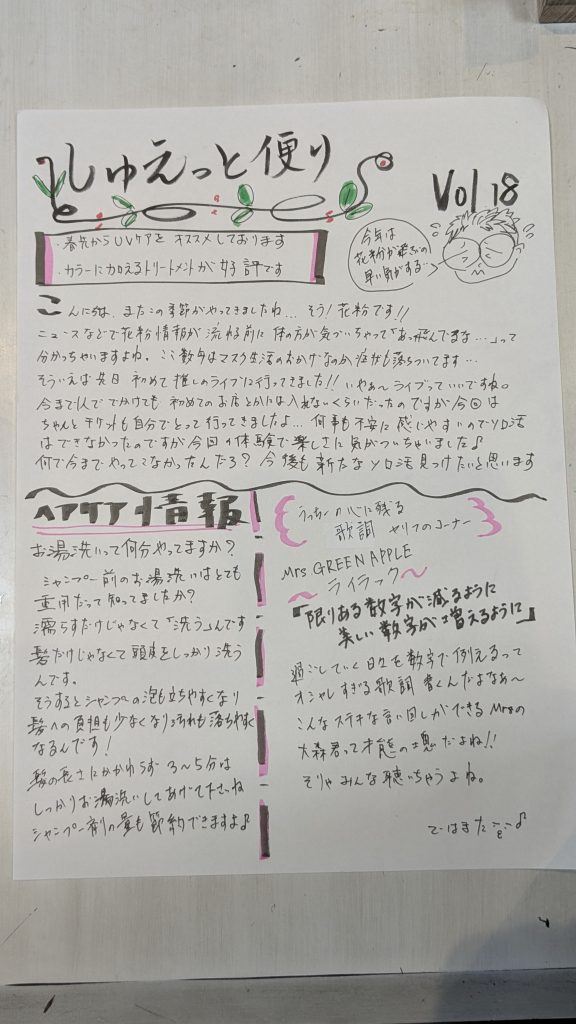 しゅえっと便り
Vol 18
・春先からUVケアをオススメしております
・カラーに加えるトリートメントが好評です
今年は
花粉が飛ぶの
早い気がする…
こんにちは、またこの季節がやってきましたね…そう!花粉です!!
ニュースなどで花粉情報が流れる前に体の方が気づいちゃって「あっ飛んでるな…」って
分かっちゃいますよね。ここ数年はマスク生活のおかげなのか症状も落ちついてます…
そういえば先日初めて推しのライブに行ってきました!!いやぁ〜ライブっていいですね。
今まで1人ででかけても初めてのお店とかには入れないくらいだったのですが今回は
ちゃんとチケットも自分でとって行ってきましたよ…何事も不安に感じやすいのでソロ活
はできなかったのですが今回の体験で楽しさに気がついちゃいました♪
何で今までやってこなかったんだろ?今後も新たなソロ活見つけたいと思います
ヘアケア情報
お湯洗いって何分やってますか?
シャンプー前のお湯洗いはとても
重要だって知ってましたか?
濡らすだけじゃなくて「洗う」んです
髪だけじゃなくて頭皮をしっかり洗う
んです。
そうするとシャンプーの泡も立ちやすくなり
髪への負担も少なくなり汚れも落ちやすく
なるんです!
髪の長さにかかわらず3〜5分は
しっかりお湯洗いしてあげて下さいね
シャンプー剤の量も節約できますよ♪
うっちーの心に残る
歌詞 のコーナー
Mrs GREEN APPLE
〜ライラック〜
「限りある数字が減るように
美しい数字が増えるように」
過ごしていく日々を数字で例えるって
オシャレすぎる歌詞書くんだよなぁ〜
こんなステキな言い回しができるMrsの
大森君って才能の塊だよね!!
そりゃみんな聴いちゃうよね。
ではまた♪